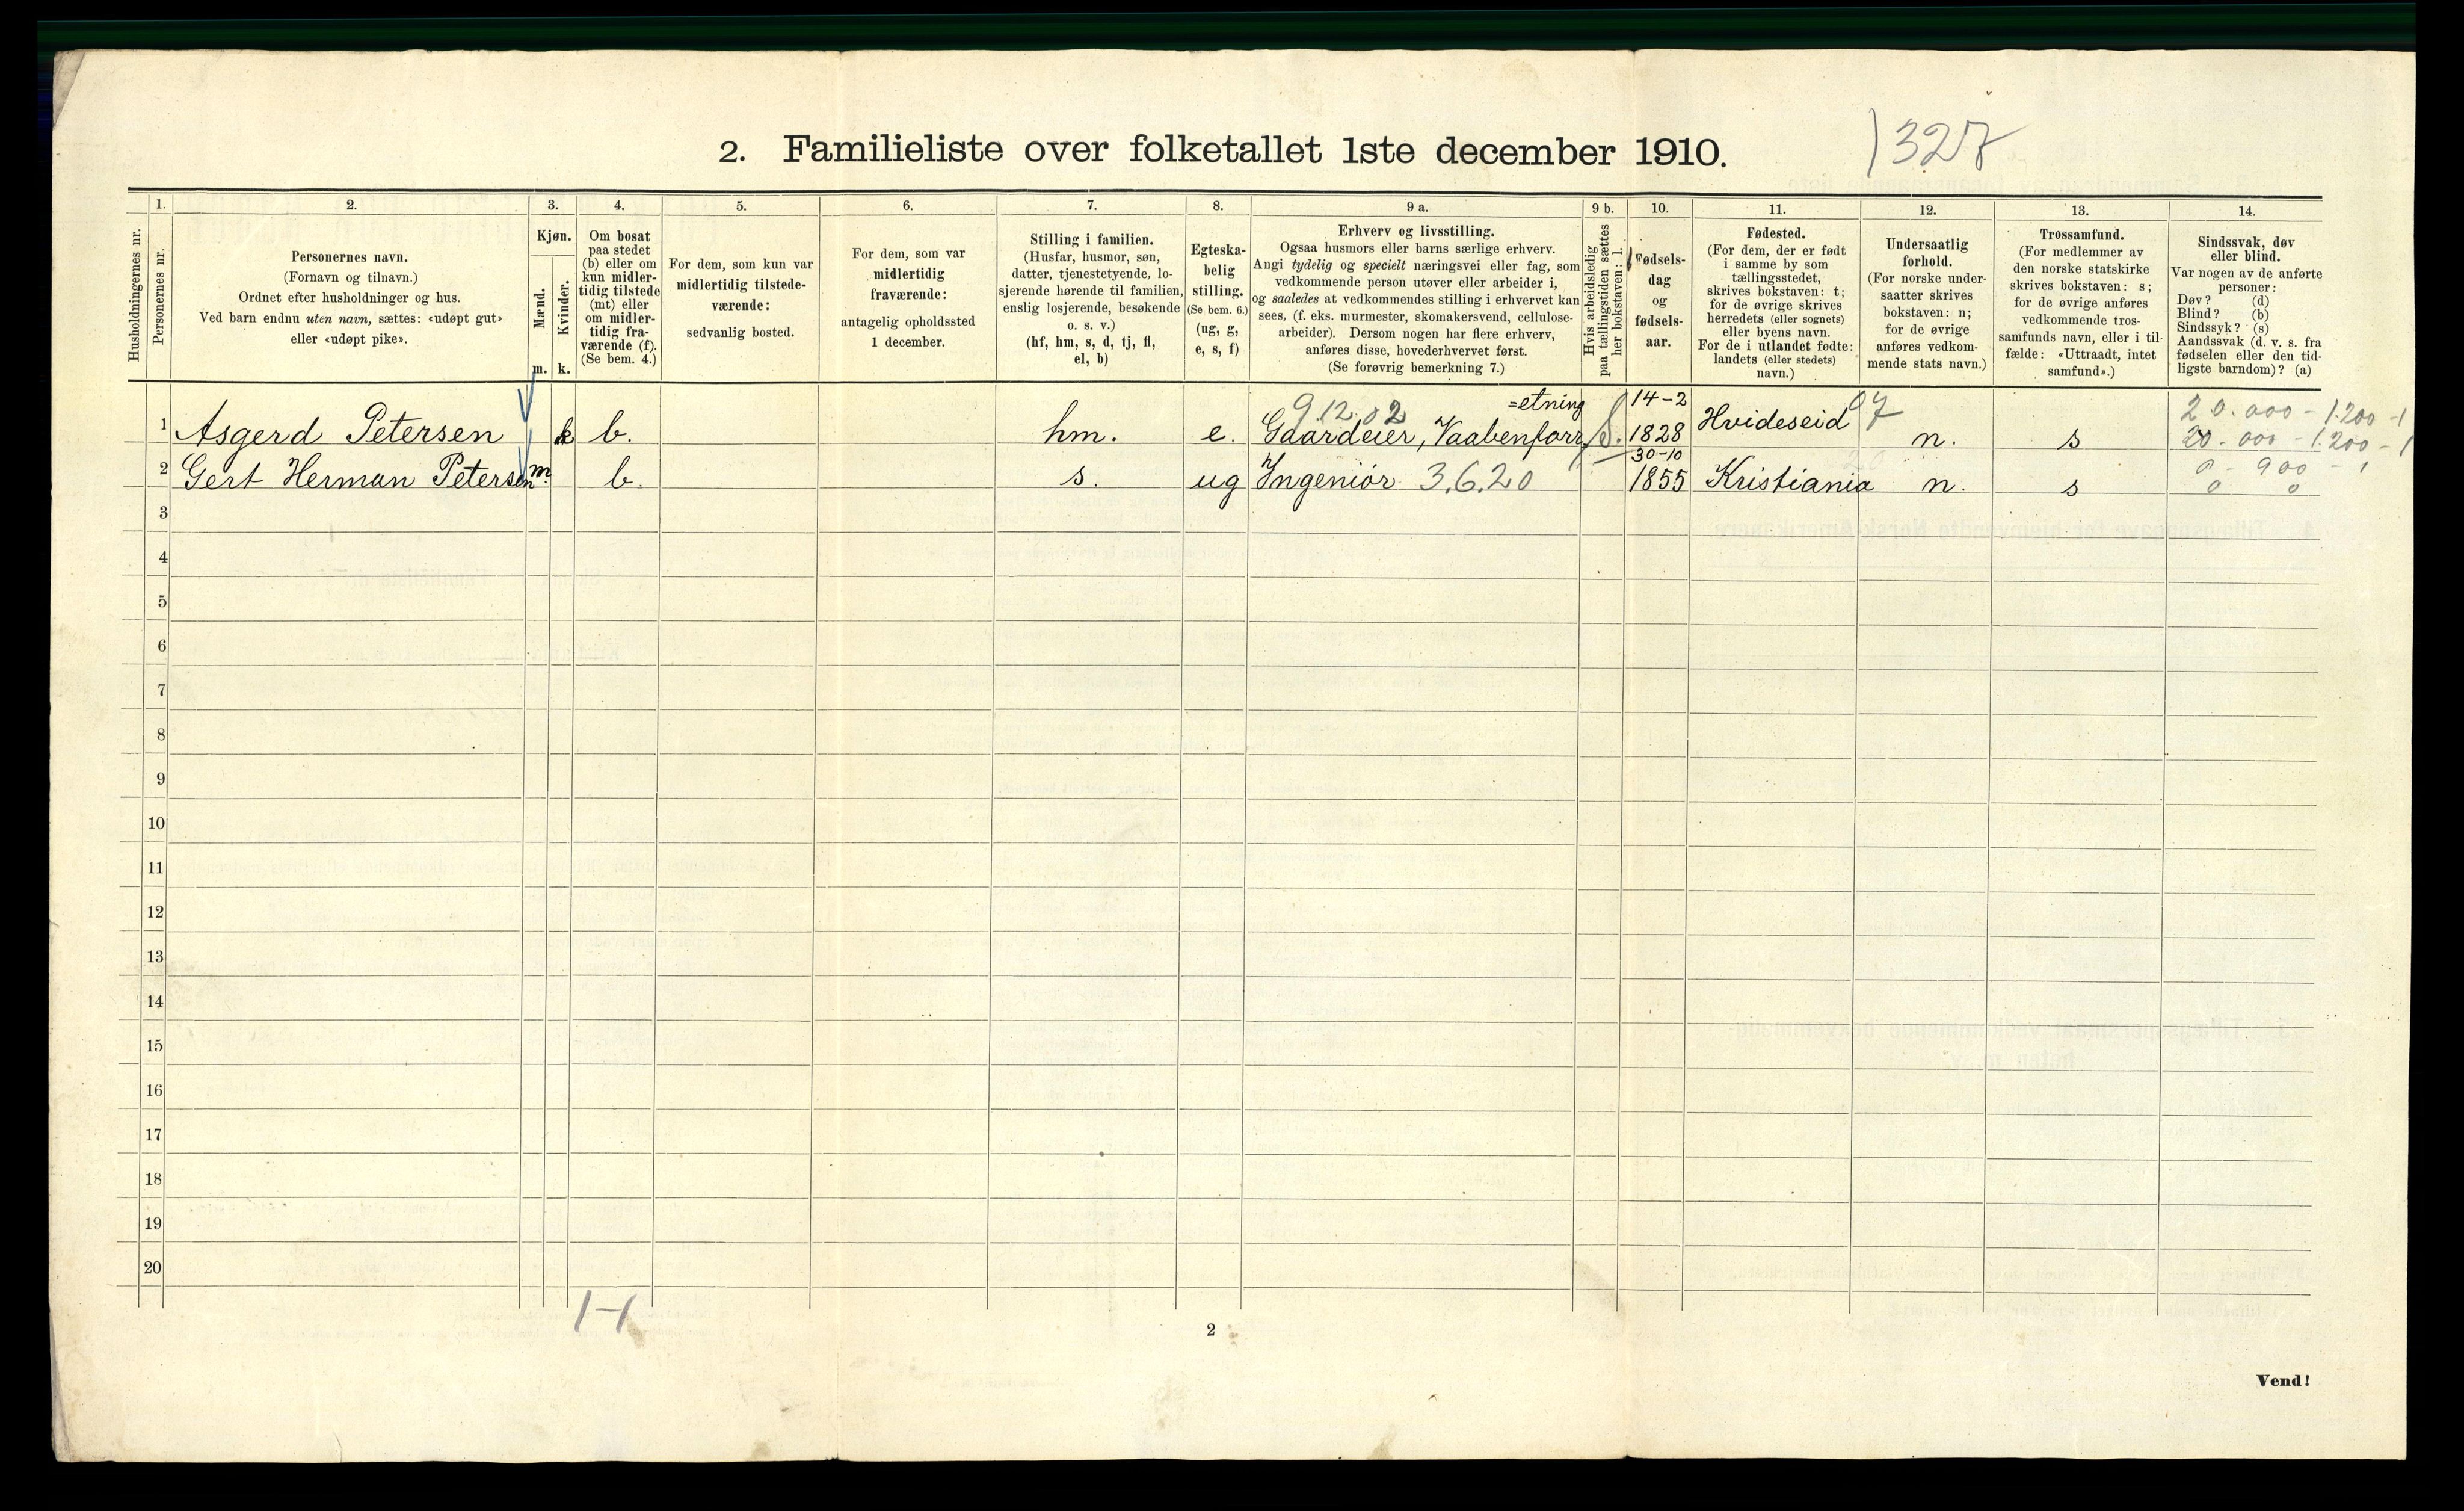 2. Familieliste over folketallet 1ste december 1910.
1327
Husholdningernes nr.
1.
Personernes nr.
2.
Personernes navn.
(Fornavn og tilnavn.)
Ordnet efter husholdninger og hus.
Ved barn endnu uten navn, sættes: «udøpt gut»
eller «udøpt pike».
3.
Kjøn.
Mænd.
Kvinder.
m.
k.
4.
Om bosat
paa stedet
(b) eller om
kun midler-
tidig tilstede
(mt) eller
om midler-
tidig fra-
værende (f).
(Se bem. 4.)
5.
For dem, som kun var
midlertidig tilstede-
værende:
sedvanlig bosted.
6.
For dem, som var
midlertidig
fraværende:
antagelig opholdssted
1 december.
7.
Stilling i familien.
(Husfar, husmor, søn,
datter, tjenestetyende, lo-
sjerende hørende til familien,
enslig losjerende, besøkende
o. s. v.)
(hf, hm, s, d, tj, fl,
el, b)
8.
Egteska-
belig
stilling.
(Se bem. 6.)
(ug, g,
e, s, f)
9 a.
Erhverv og livsstilling.
Ogsaa husmors eller barns særlige erhverv.
Angi tydelig og specielt næringsvei eller fag, som
vedkommende person utøver eller arbeider i,
og saaledes at vedkommendes stilling i erhvervet kan
sees, (f. eks. murmester, skomakersvend, cellulose-
arbeider). Dersom nogen har flere erhverv,
anføres disse, hovederhvervet først.
(Se forøvrig bemerkning 7.)
9 b.
Hvis arbeidsledig
paa tællingstiden sættes
her bokstaven: l.
10.
Fødsels-
dag
og
fødsels-
aar.
11.
Fødested.
(For dem, der er født
i samme by som
tællingsstedet,
skrives bokstaven: t;
for de øvrige skrives
herredets (eller sognets)
eller byens navn.
For de i utlandet fødte:
landets (eller stedets)
navn.)
12.
Undersaatlig
forhold.
(For norske under-
saatter skrives
bokstaven: n;
for de øvrige
anføres vedkom-
mende stats navn.)
13.
Trossamfund.
(For medlemmer av
den norske statskirke
skrives bokstaven: s;
for de øvrige anføres
vedkommende tros-
samfunds navn, eller i til-
fælde: «Uttraadt, intet
samfund».)
14.
Sindssvak, døv
eller blind.
Var nogen av de anførte
personer:
Døv? (d)
Blind? (b)
Sindssyk? (s)
Aandssvak (d. v. s. fra
fødselen eller den tid-
ligste barndom)? (a)
9.12.02 =etning 14-2 07 20.000 - 1.200 - 1
1 Asgerd Petersen k b. hm. e. Gaardeier, Vaabenforr 1828 Hvideseid n. s 20.000 - 1.200 - 1
30-10 0 - 900 - 1
2 Gert Herman Petersen m. b. s. ug Ingeniør 3.6.20 1855 Kristiania n. s 0 0
3
4
5
6
7
8
9
10
11
12
13
14
15
16
17
18
19
20
1-1
2
Vend!